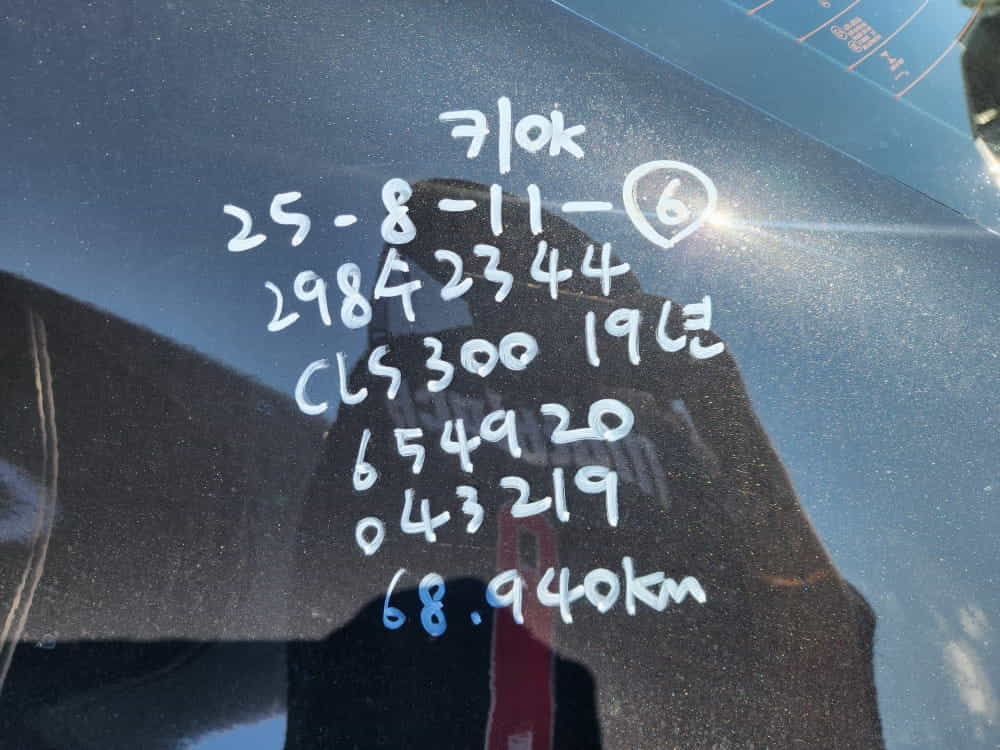 키ok
25-8-11-⑥
298수2344
CLS300 19년
654920
043219
68.940km